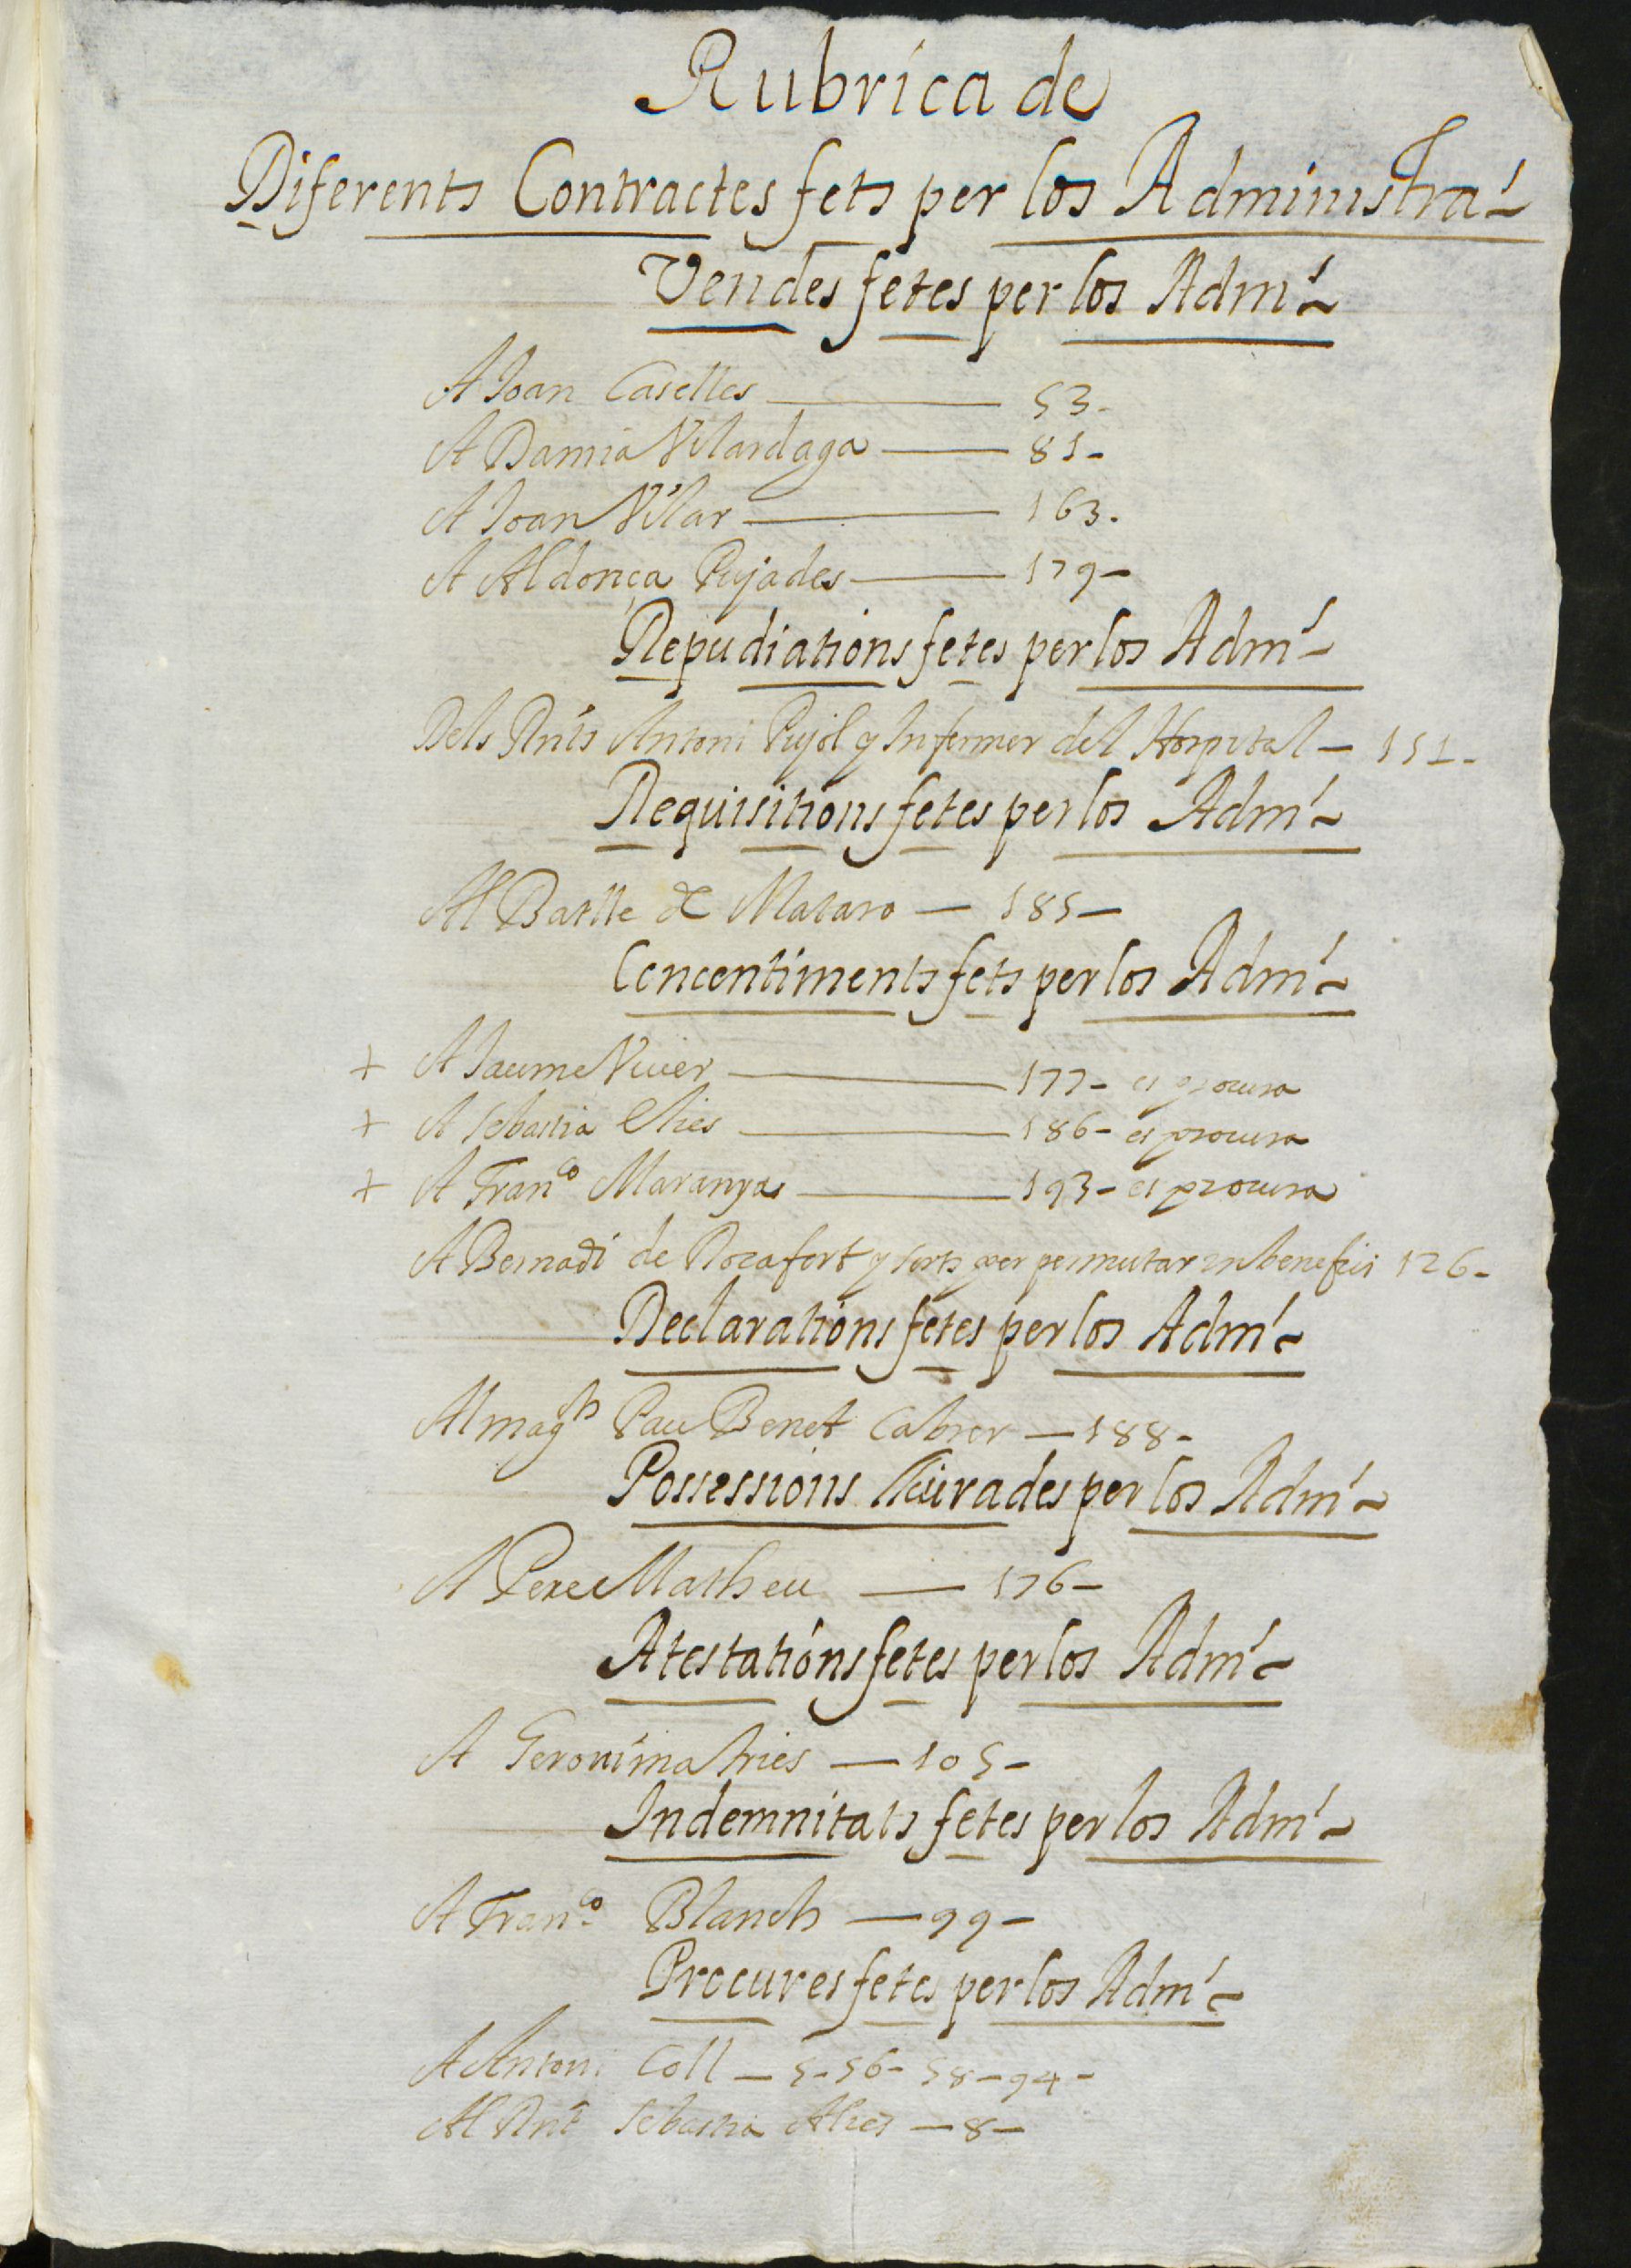 Rubrica de
Diferents Contractes fets per los Administra´~
Vendes fetes per los Adm´~
A Joan Caselles — 53.
A Damia Vilardaga — 81-
A Joan Vilar — 163.
A Aldonça Pujades — 179-
Repudiations fetes per los Adm´~
Dels Rn̄ts Antoni Pujol y Infermer del Hospital — 151-
Requisitions fetes per los Adm´~
Al Batlle de Mataro — 185-
Concentiments fets per los Adm´~
+ A Jaume Viver — 177- es procura
+ A Sebastia — 186- es procura
+ A Franco Maranyas — 193- es procura
A Bernadi de Rocafort y per permutar un benefici 126-
Declarations fetes per los Adm´~
Al magch Pau Benet Cabrer — 188-
Possessions lliurades per los Adm´~
A Pere Matheu — 176-
Atestations fetes per los Adm´~
A Geronima — 105-
Indemnitats fetes per los Adm´~
A Franco Blanch — 99-
Procures fetes per los Adm´~
A Antoni Coll — 5-56-58-94-
Al Rnt Sebastia — 8-